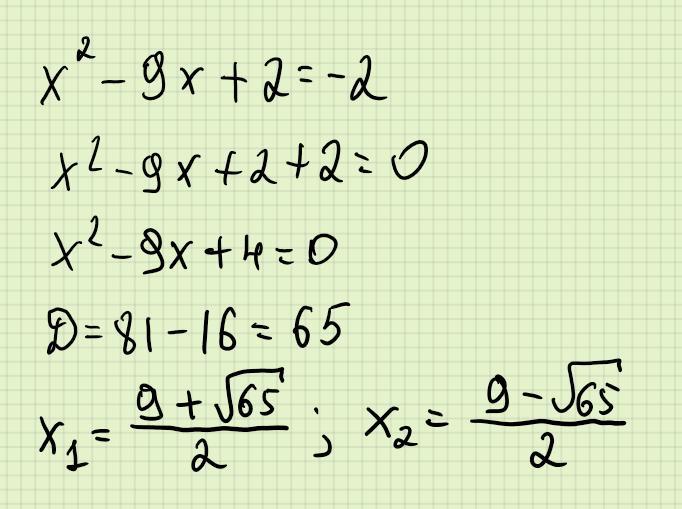 x² - 9x + 2 = -2
x² - 9x + 2 + 2 = 0
x² - 9x + 4 = 0
D = 81 - 16 = 65
x₁ = (9 + √65)/2 ; x₂ = (9 - √65)/2